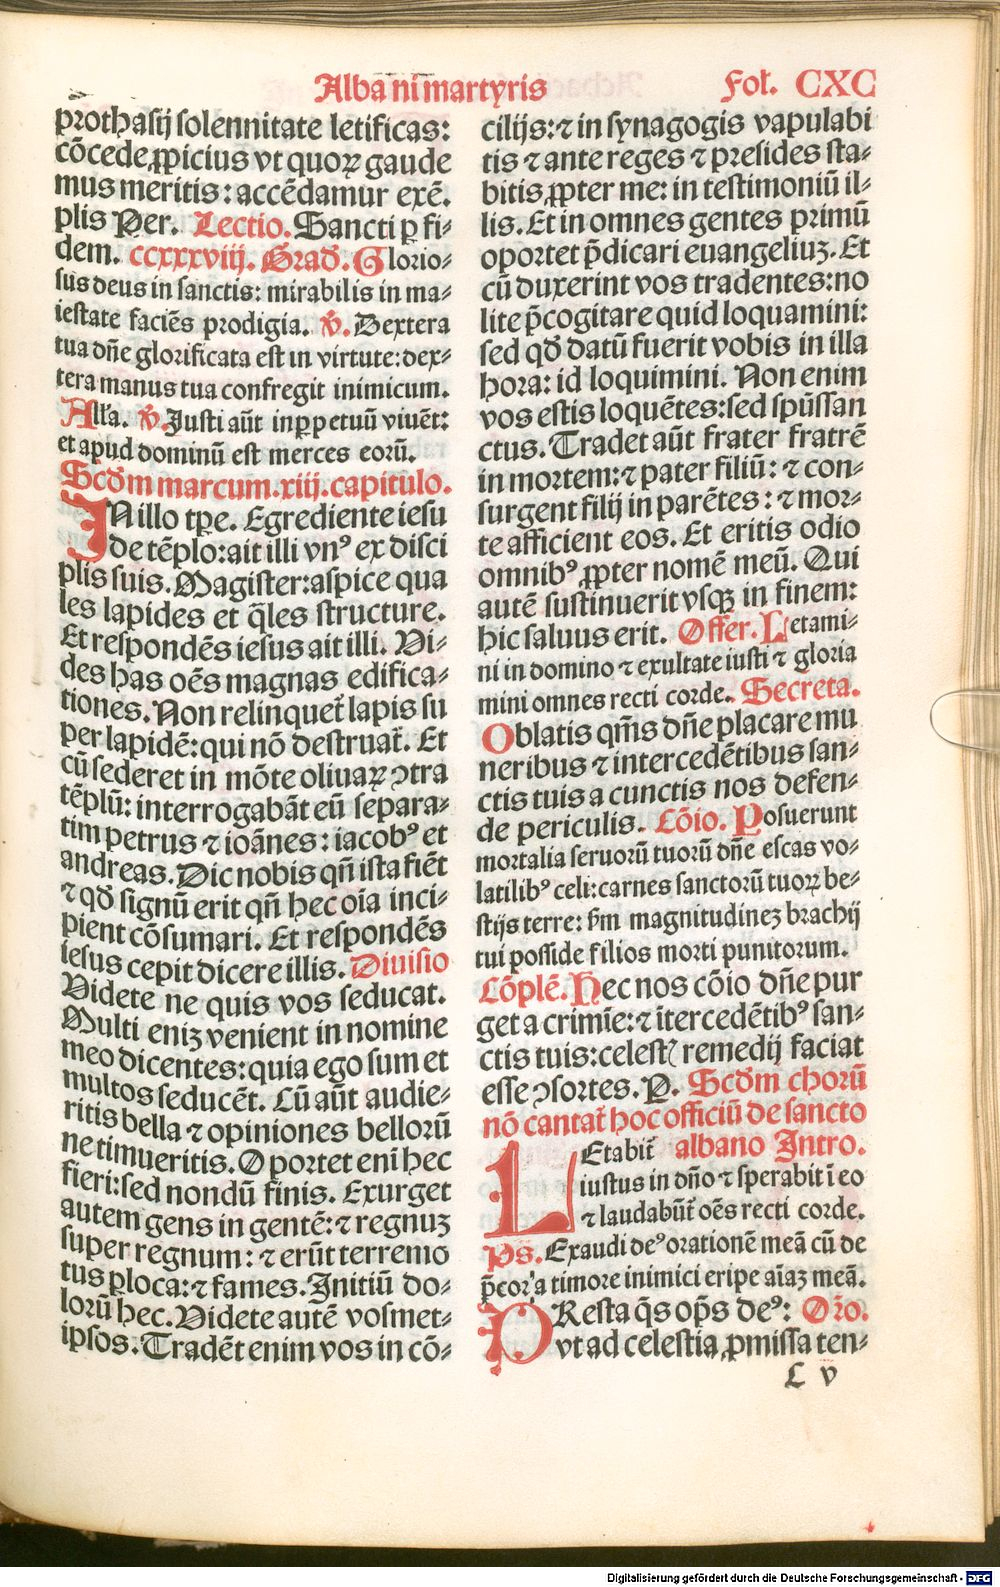 Albani martyris Fol. CXC
prothasij solennitate letificas:
cõcede ꝓpicius vt quoꝝ gaude
mus meritis: accẽdamur exẽ.
plis Per. Lectio. Sancti ꝑ fi⸗
dem. ccxxxviij. Grad̃. Glorio⸗
sus deus in sanctis: mirabilis in ma⸗
iestate faciẽs prodigia. ℣. Dextera
tua dñe glorificata est in virtute: dex⸗
tera manus tua confregit inimicum.
Alľa. ℣. Justi aũt in ꝑpetuũ viuẽt:
et apud dominũ est merces eorũ.
Scd̃m marcum. xiij. capitulo.
IN illo tꝑe. Egrediente iesu
de tẽplo: ait illi vnꝰ ex disci
plis suis. Magister: aspice qua
les lapides et q̃les structure.
Et respondẽs iesus ait illi. Vi⸗
des has oẽs magnas edifica⸗
tiones. Non relinquet̃ lapis su
per lapidẽ: qui nõ destruat̃. Et
cũ sederet in mõte oliuaꝝ ↄtra
tẽplũ: interrogabãt eũ separa⸗
tim petrus ⁊ ioãnes: iacobꝰ et
andreas. Dic nobis qñ ista fiẽt
⁊ qd̃ signũ erit qñ hec oĩa inci⸗
pient cõsumari. Et respondẽs
iesus cepit dicere illis. Diuisio
Videte ne quis vos seducat.
Multi eniꝫ venient in nomine
meo dicentes: quia ego sum et
multos seducẽt. Cũ aũt audie⸗
ritis bella ⁊ opiniones bellorũ
ne timueritis. Oportet enĩ hec
fieri: sed nondũ finis. Exurget
autem gens in gentẽ: ⁊ regnuꝫ
super regnum: ⁊ erũt terremo
tus ꝑ loca: ⁊ fames. Initiũ do⸗
lorũ hec. Videte autẽ vosmet⸗
ipsos. Tradẽt enim vos in cõ⸗
cilijs: ⁊ in synagogis vapulabi
tis ⁊ ante reges ⁊ presides sta⸗
bitis ꝓpter me: in testimoniũ il⸗
lis. Et in omnes gentes primũ
oportet p̃dicari euangeliuꝫ. Et
cũ duxerint vos tradentes: no
lite p̃cogitare quid loquamini:
sed qd̃ datũ fuerit vobis in illa
hora: id loquimini. Non enim
vos estis loquẽtes: sed spũssan
ctus. Tradet aũt frater fratrẽ
in mortem: ⁊ pater filiũ: ⁊ con⸗
surgent filij in parẽtes: ⁊ mor⸗
te afficient eos. Et eritis odio
omnibꝰ ꝓpter nomẽ meũ. Qui
autẽ sustinuerit vsqꝫ in finem:
hic saluus erit. Offer. Letami⸗
ni in domino ⁊ exultate iusti ⁊ gloria
mini omnes recti corde. Secreta.
Oblatis qm̃s dñe placare mu
neribus ⁊ intercedẽtibus san⸗
ctis tuis a cunctis nos defen⸗
de periculis. Cõio. Posuerunt
mortalia seruorũ tuorũ dñe escas vo⸗
latilibꝰ celi: carnes sanctorũ tuoꝝ be⸗
stijs terre: ẜm magnitudineꝫ brachij
tui posside filios morti punitorum.
Cõplẽ. Hec nos cõio dñe pur
get a crimĩe: ⁊ ĩtercedẽtibꝰ san⸗
ctis tuis: celestꝭ remedij faciat
esse ↄsortes. P. Scd̃m chorũ
nõ cantat̃ hoc officiũ de sancto
albano Intro.
LEtabit̃
iustus in dño ⁊ sperabit ĩ eo
⁊ laudabũt̃ oẽs recti corde.
Ps̃. Exaudi deꝰ orationẽ meã cũ de
p̃cor: a timore inimici eripe aĩaꝫ meã.
PResta q̃s op̃s deꝰ: Or̃o.
vt ad celestia ꝓmissa ten⸗
C v
Digitalisierung gefördert durch die Deutsche Forschungsgemeinschaft - DFG